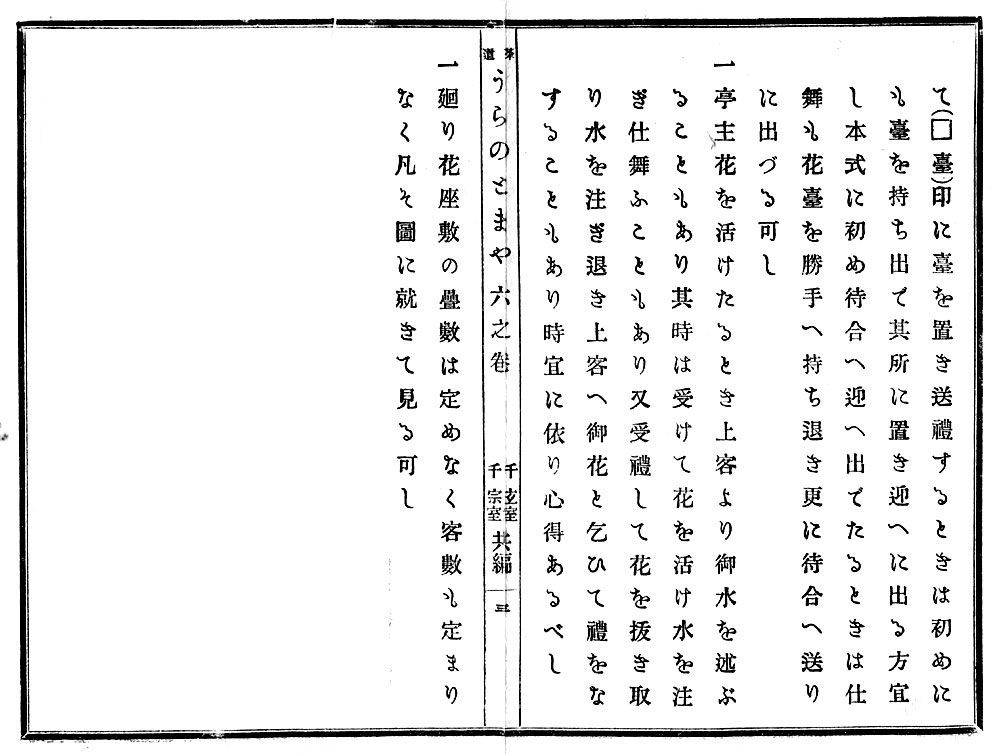 て(□臺)印に臺を置き送禮するときは初めに
も臺を持ち出で其所に置き迎へに出る方宜
し本式に初め待合へ迎へ出でたるときは仕
舞も花臺を勝手へ持ち退き更に待合へ送り
に出づる可し
一亭主花を活けたるとき上客より御水を述ぶ
ることもあり其時は受けて花を活け水を注
ぎ仕舞ふこともあり又受禮して花を拔き取
り水を注ぎ退き上客へ御花と乞ひて禮をな
することもあり時宜に依り心得あるべし
茶道 うらのとまや六之卷 千玄室 千宗室 共編 三
一廻り花座敷の疊數は定めなく客數も定まり
なく凡そ圖に就きて見る可し